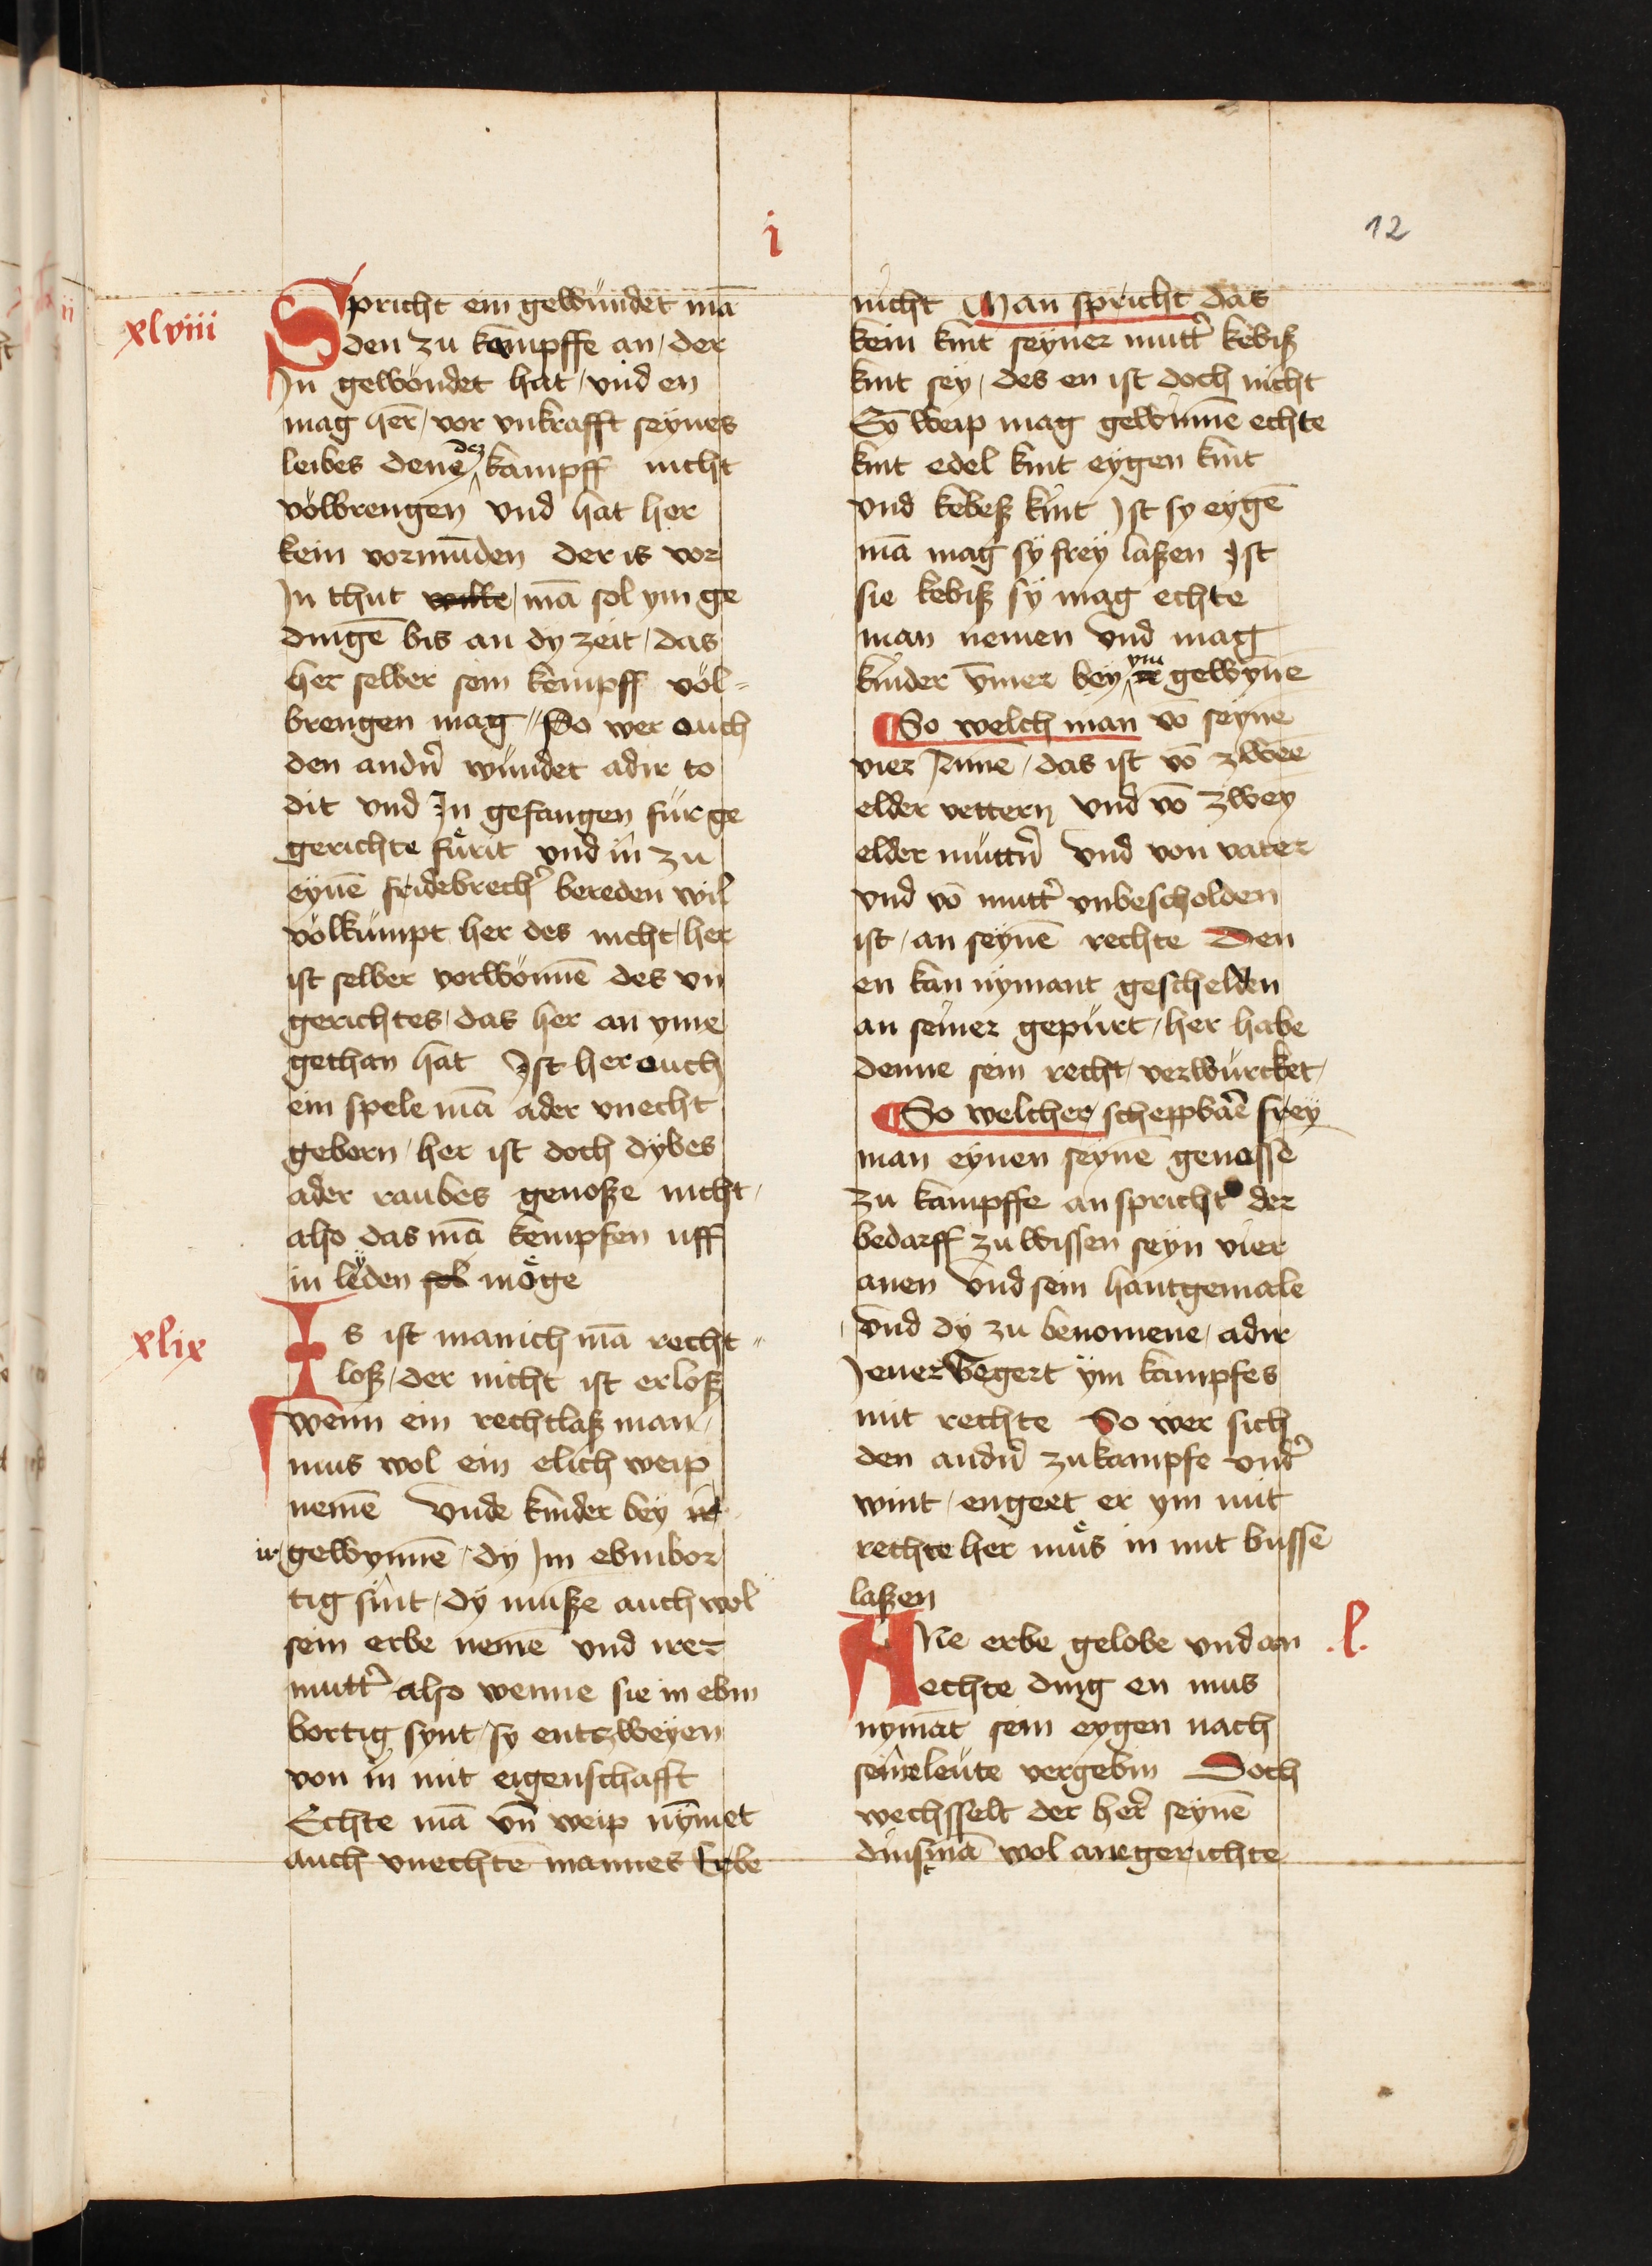 i
12
xlviii
Spricht ein gewundet mā
den zu kampffe an / der
In gewondet hat / vnd en
mag her̄ / vor vnkrafft seynes
leibes denē dez kampff nicht
volbrengen vnd hat her
kein vormūden der is vor
In thut wille / mā sol ym ge
dingē bis an dy zeit / das
her selber sein kempff vol=
brengen mag // So wer ouch
den andn̄ wundet adir to
dit vnd In gefangen fur ge
gerichte furit vnd in zu
eynē fridebrech̄ bereden wil
volkumpt her des nicht / her
ist selber vorwonnē des vn
gerichtes / das her an yme
gethan hat Ist her ouch
ein spele mā ader vnecht
geborn / her ist doch dybes
ader raubes genosze nicht /
also das mā kempfen uff
in leyden sol möge
xlix
Is ist manich mā recht=
losz / der nicht ist erlosz
Wenn ein rechtlasz man /
mus wol ein elich weip
nemē vnde kinder bey ir
ir gewynnē / dy Im ebinbor
tig sint / dy musze auch wol
sein erbe nemē vnd irer
mutt̄ also wenne sie in ebin
bortig synt / sy entzweyen
von in mit eigenschafft
Echte mā vn̄ weip nymet
auch vnechte mannes Erbe
nicht Man spricht das
kein kint seyner mutt̄ kebisz
kint sey / des en ist doch nicht
Eȳ weip mag gewinnē echte
kint edel kint eygen kint
vnd kebesz kint Ist sy eygē
mā mag sy frey laszen Ist
sie kebisz sy mag echte
man nemen vnd mag
kinder ȳmer bey ym ir gewynne
So welch man vō seyne
vier Annē / das ist vō zwēe
elder vettern vnd vō zwey
elder muttn̄ vnd von vater
vnd vō mutt̄ vnbescholden
ist / an seynē rechte Den
en kan nymant geschelden
an seiner gepurt / her habe
denne sein recht / verwurcket /
So welcher scheppbāe frey
man eynen seynē genosse
zu kampffe an spricht der
bedarff zu wissen seyn vier
anen vnd sein hantgemale
/ vnd dy zu benomene / adir
Iener wegert ym kampfes
mit rechte So wer sich
den andn̄ zu kampfe vnt̄
wint / engeet er ym mit
rechte her mus in mit busse
laszen
l.
Ane erbe gelobe vnd an
echte ding en mus
nymāt sein eygen nach
seine leute vergebin Doch
wechsselt der her̄ seynē
dinstmā wol ane gerichte